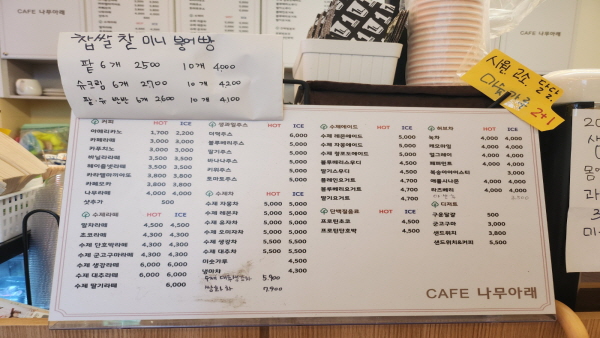 CAFE 나무아래
찹쌀 찰 미니 붕어빵
팥 6개 2500 10개 4.000
슈크림 6개 2700 10개 4200
팥.슈 반반 6개 2600 10개 4.100
시원 고소 달달
2+1
커피 HOT ICE
아메리카노 1,700 2,200
카페라떼
카푸치노
바닐라라떼 3,500 3,500
헤이즐넛라떼 3,500 3,500
카라멜마끼아또 3,800 3,800
카페모카 3,800 3,800
나무라떼 4,000 4,000
샷추가 500
수제라떼 HOT ICE
딸자라떼 4,500 4,500
초코라떼 4,300 4,300
수제 단호박라떼 4,300 4,300
수제 군고구마라떼 4,300 4,300
수제 생강라떼 6,000 6,000
수제 대추라떼 6,000 6,000
수제 딸기라떼 6,000
생과일주스 ICE
더덕주스 6,000
블루베리주스 5,000
딸기주스 5,000
바나나주스 5,000
키위주스 5,000
토마토주스 5,000
수제차 HOT ICE
수제 자몽차 5,000 5,000
수제 레몬차 5,000 5,000
수제 유자차 5,000 5,000
수제 오미자차 5,000 5,000
수제 생강차 5,500 5,500
수제 대추차 5,500 5,500
미숫가루 4,500
냉마차 4,300
수제 대추생강차 5,900
쌍화차 7,900
수제에이드 HOT ICE
수제 레몬에이드 5,000
수제 자몽에이드 5,000
수제 청포도에이드 5,000
블루베리스무디 4,500
딸기스무디 4,500
플레인요거트 4,700
블루베리요거트 4,700
딸기요거트 4,700
단백질음료 HOT ICE
프로틴초코 4,500
프로틴단호박 4,500
허브차 HOT ICE
녹차 4,000 4,000
캐모마일 4,000 4,000
얼그레이 4,000 4,000
페퍼민트 4,000 4,000
복숭아아이스티 3,000
애플시나몬 4,000 4,000
라즈베리 4,000 4,000
디저트
구운달걀 500
군고구마 3,000
샌드위치 3,000
샌드위치&커피 5,500
CAFE 나무아래